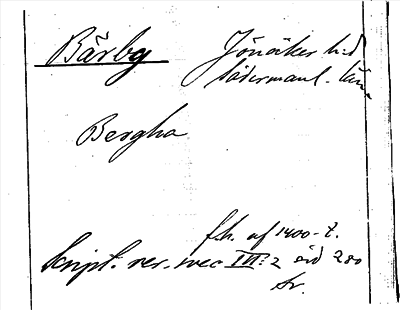 Bärby Jönåker h:d
Södermanl. län
Bergha
fh. af 1400-t.
Script. rer. svec III:2 sid 280